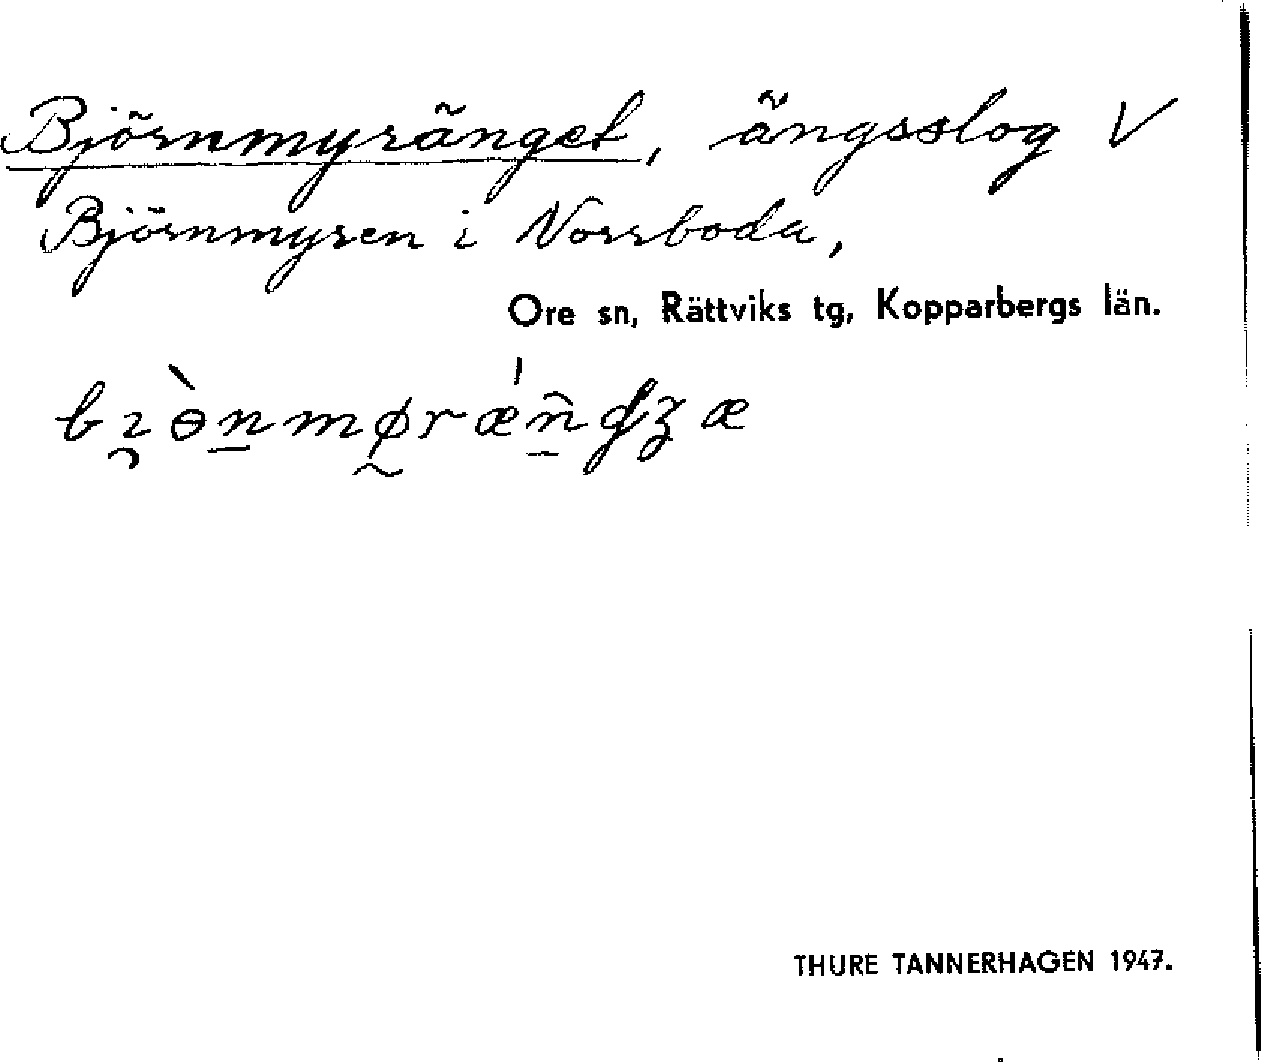 Björnmyränget, ängsslog V
Björnmyren i Norrboda,
Ore sn, Rättviks tg, Kopparbergs län.
THURE TANNERHAGEN 1947.